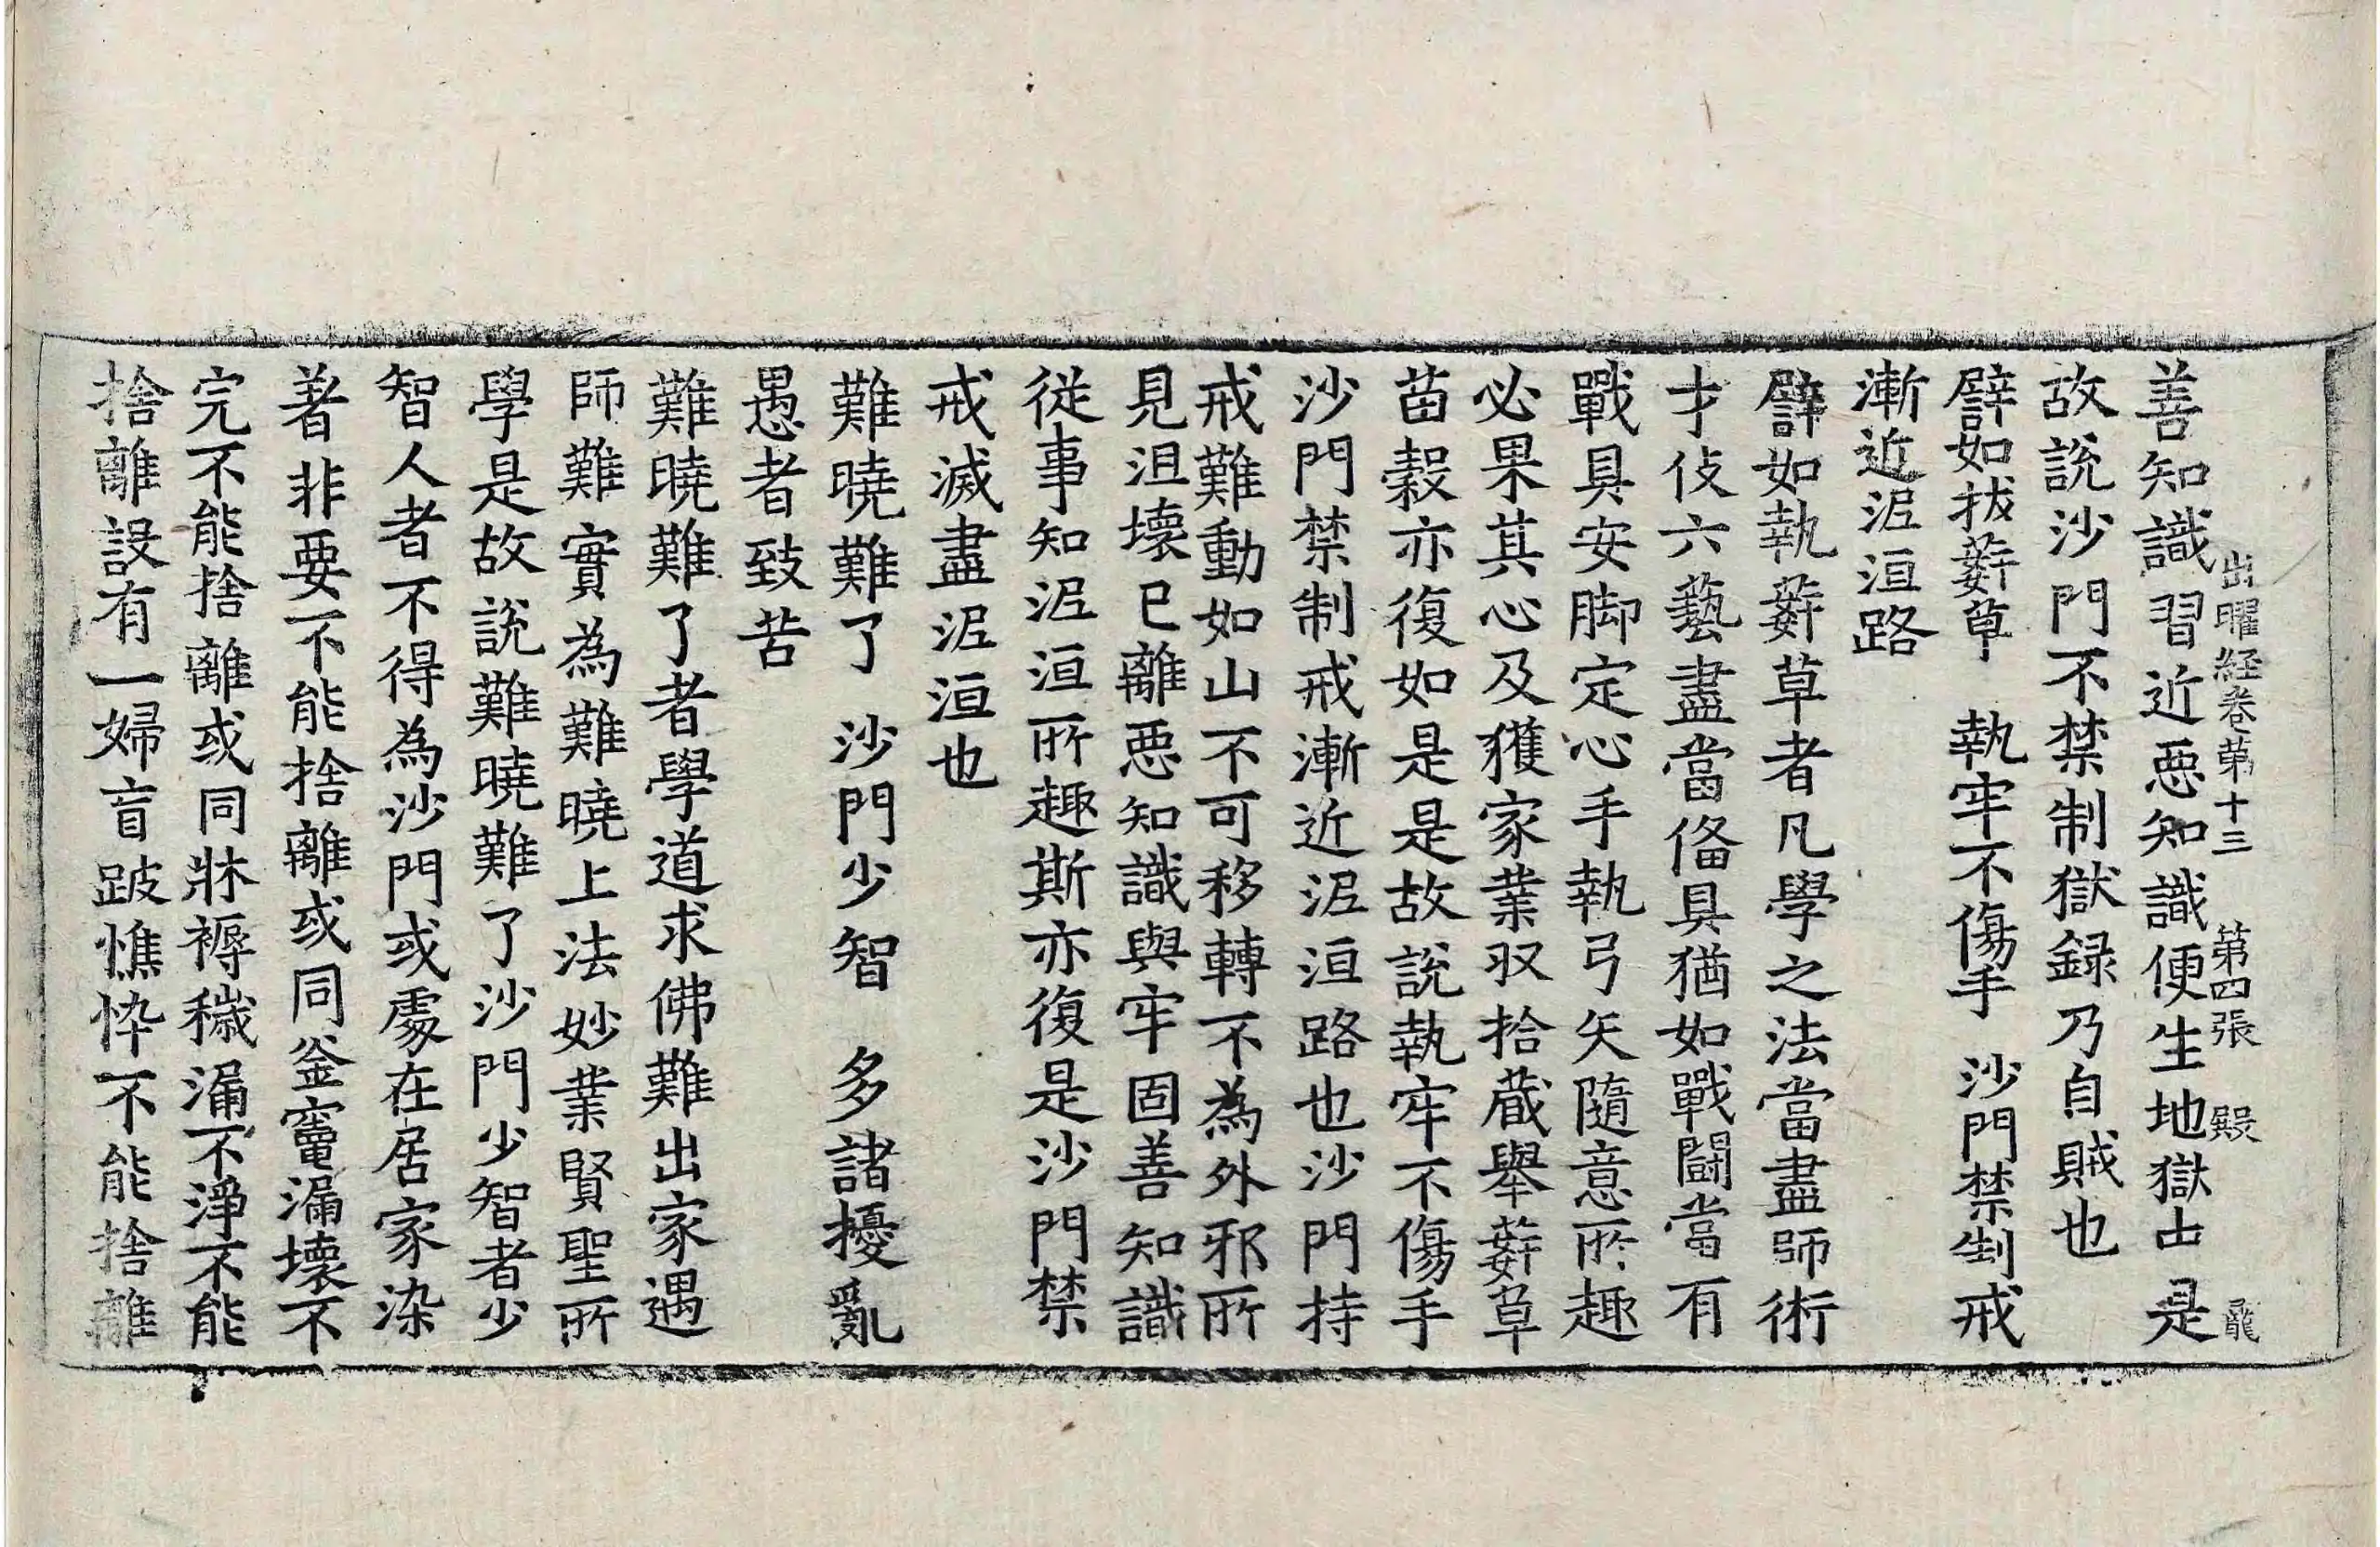 善知識習近惡知識便生地獄㞢是
出曜経卷第十三 第四張 殿
故說沙門不禁制獄録乃自賊也
譬如拔䓑草 執牢不傷手 沙門禁制戒
漸近泥洹路
譬如執䓑草者凡學之法當盡師術
才伎六藝盡當俻具猶如戰鬪當有
戰具安脚定心手執弓矢隨意所趣
必果其心及獲家業収拾蔵舉䓑草
苗穀亦復如是是故說執牢不傷手
沙門禁制戒漸近泥洹路也沙門持
戒難動如山不可移轉不為外邪所
見沮壞已離惡知識與牢固善知識
従事知泥洹所趣斯亦復是沙門禁
戒滅盡泥洹也
難曉難了 沙門少智 多諸擾亂
愚者致苦
難曉難了者學道求佛難出家遇
師難實為難曉上法妙業賢聖所
學是故說難曉難了沙門少智者少
智人者不得為沙門或處在居家染
著非要不能捨離或同釜竃漏壞不
完不能捨離或同牀褥穢漏不淨不能
捨離設有一婦盲跛憔悴不能捨離